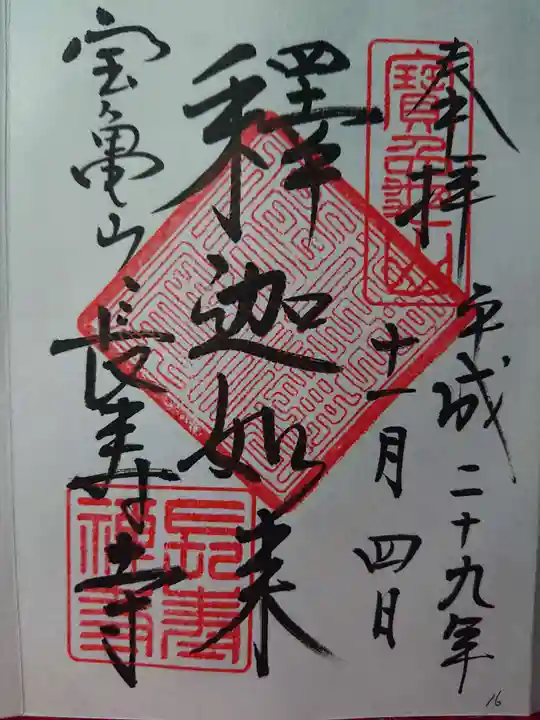 奉拝
平成二十九年
十一月四日
釋迦如来
宝亀山
長寿寺
長寿
禅寺
16